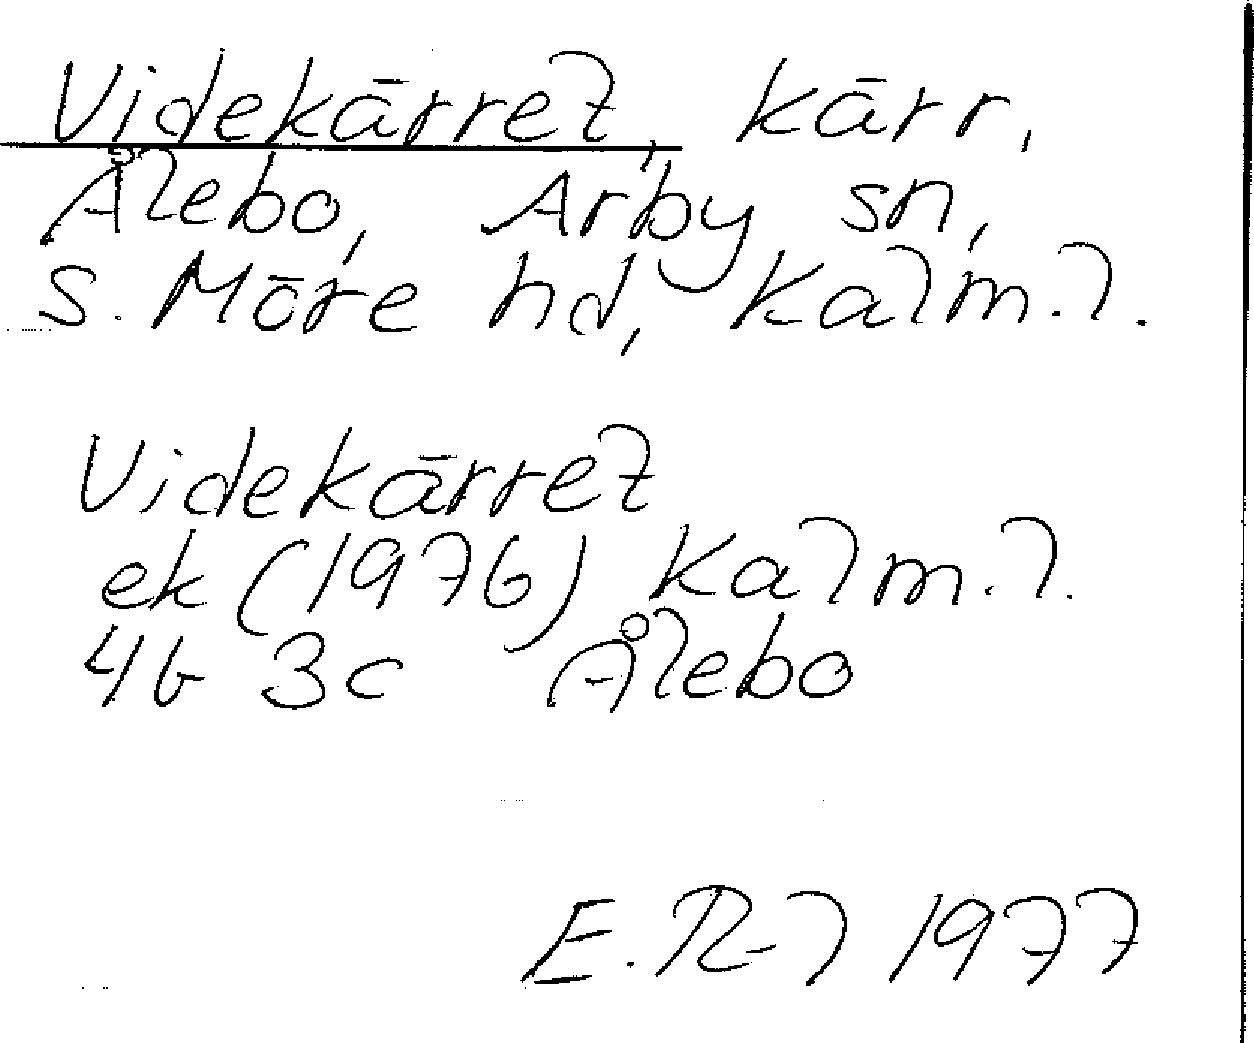 Videkärret, kärr,
Ålebo, Arby sn,
S. Möre hd, Kalm. l.
Videkärret
ek (1976) Kalm. l.
4G 3c Ålebo
E. R-l 1977